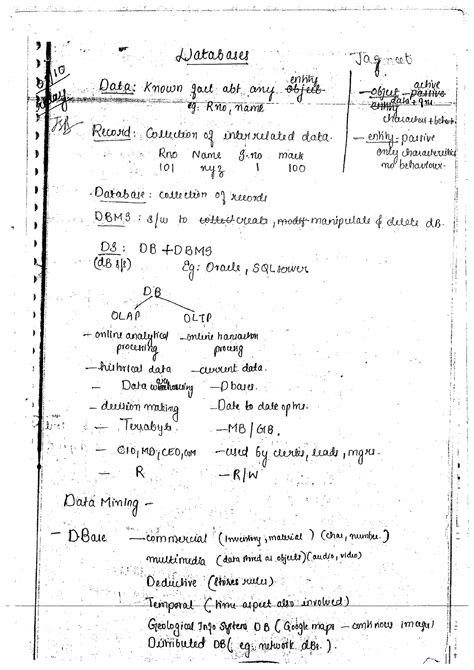 Databases
Jagmeet
Data: Known fact abt any object entity
eg. Rno, name
Record: Collection of interrelated data.
Rno Name g.no mark
101 xyz 1 100
active
object - passive
entity data + qns
characters + behav.
- entity - passive
only characteristics
no behaviour.
Database: collection of records
DBMS: s/w to collect create, modify manipulate & delete db.
DS: DB + DBMS
(dB s/s) Eg: Oracle, SQL server
DB
OLAP OLTP
- online analytical processing - online transaction processg
- historical data - current data.
- Data warehousing - Dbases.
- decision making - Date to date opns.
- Terrabyte - MB/GB.
- CIO, MD, CEO, GM - used by clerks, leads, mgrs.
- R - R/W
Data Mining -
- DBase - commercial (Inventory, material) (char, number.)
multimedia (data stored as objects) (audio, video)
Deductive (stores rules)
Temporal (time aspect also involved)
Geological Info System DB (Google maps - continous images)
Distributed DB (eg: network dbs.)